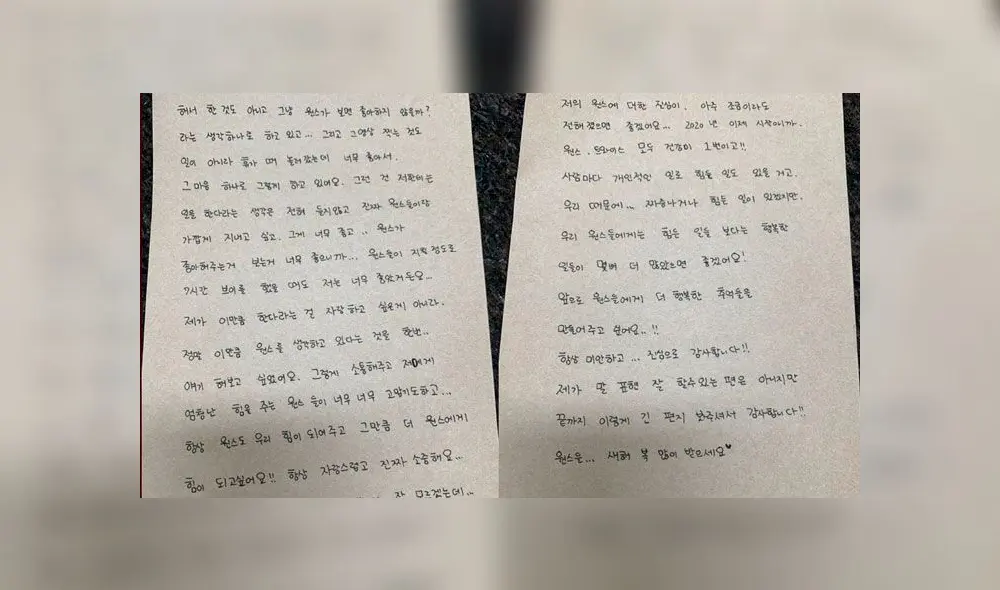 해서 한 것도 아니고 그냥 원스가 보면 좋아하지 않을까?
라는 생각하나로 하고 있고... 그리고 그영상 찍는 것도
일이 아니라 휴가 때 놀러갔는데 너무 좋아서.
그 마음 하나로 그렇게 하고 있어요. 그런 건 저한테는
일을 한다라는 생각은 전혀 들지않고 진짜 원스들이랑
가깝게 지내고 싶고. 그게 너무 좋고.. 원스가
좋아해주는거 보는게 너무 좋으니까... 원스들이 지칠 정도로
7시간 브이를 했을 때도 저는 너무 좋았거든요...
제가 이만큼 한다라는 걸 자랑하고 싶은게 아니라.
정말 이만큼 원스를 생각하고 있다는 것을 한번..
얘기 해보고 싶었어요. 그렇게 소통해주고 저에게
엄청난 힘을 주는 원스 들이 너무 너무 고맙기도하고...
항상 원스도 우리 힘이 되어주고 그만큼 더 원스에게
힘이 되고싶어요!! 항상 자랑스럽고 진짜 소중해요...
잘 모르겠는데..
저의 원스에 대한 진심이. 아주 조금이라도
전해 졌으면 좋겠어요... 2020년 이제 시작이니까.
원스. 트와이스 모두 건강이 1번이고!!
사람마다 개인적인 일로 힘들 일도 있을 거고.
우리 때문에... 짜증나거나 힘든 일이 있겠지만.
우리 원스들에게는 힘든 일들 보다는 행복한
일들이 몇배 더 많았으면 좋겠어요!
앞으로 원스들에게 더 행복한 추억들을
만들어주고 싶어요..!!
항상 미안하고... 진심으로 감사합니다!!
제가 말 표현 잘 할수있는 편은 아니지만
끝까지 이렇게 긴 편지 봐주셔서 감사합니다!!
원스들... 새해 복 많이 받으세요♥